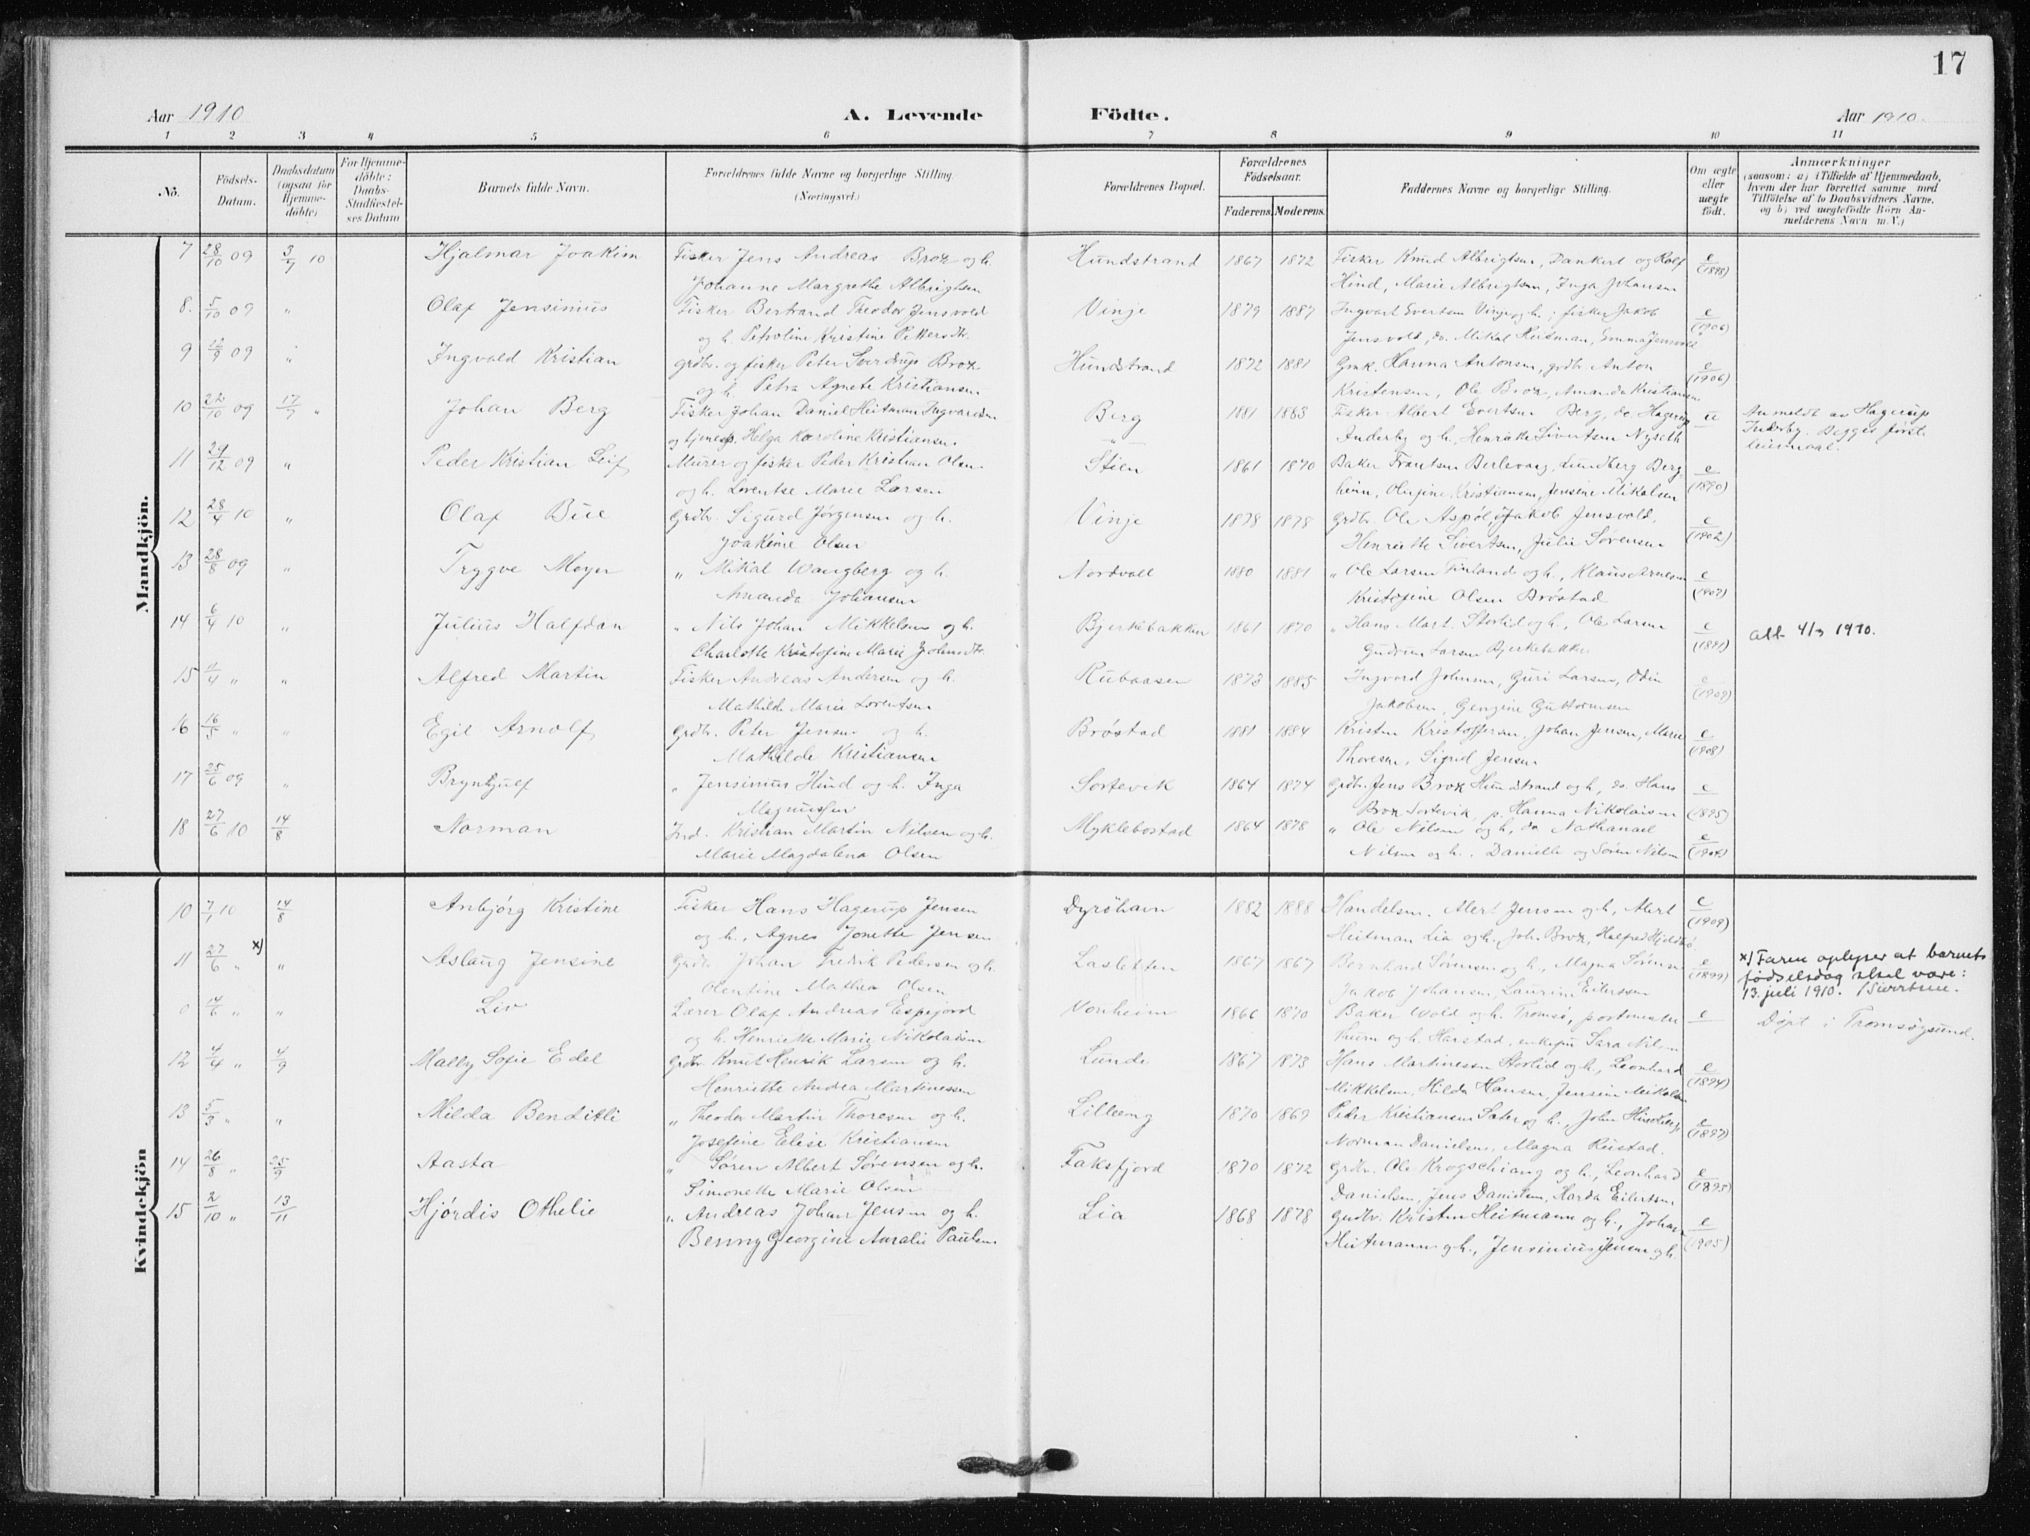 17
Aar 1910
A. Levende Födte.
Aar 1910.
1 2 3 4 5 6 7 8 9 10 11
No.
Födsels-Datum.
Daabsdatum (ogsaa for Hjemmedöbte)
For Hjemmedöbte: Daabs-Stadfæstelses Datum
Barnets fulde Navn.
Forældrenes fulde Navne og borgerlige Stilling. (Næringsvei.)
Forældrenes Bopæl.
Forældrenes Födselsaar.
Faderens. Moderens.
Faddernes Navne og borgerlige Stilling.
Om ægte eller uægte födt.
Anmærkninger
(saasom: a) i Tilfælde af Hjemmedaab, hvem der har forrettet samme med Tilföielse af to Daabsvidners Navne, og b) ved uægtefödte Börn Anmelderens Navn m.V.)
Mandkjön.
7 28/10 09 3/7 10 Hjalmar Joakim Fisker Jens Andreas Brox og h. Hundstrand 1867 1872 Fisker Knud Albrigtsen, Dankert og Rolf e
Johanne Margrethe Albrigtsen Hind, Marie Albrigtsen, Inga Johansen (1898)
8. 5/10 09 " Olaf Jensinius Fisker Bertrand Theodor Jensvold Vinje 1879 1887 Ingvart Evertsen Vinje og h; fisker Jakob e
og h. Petroline Kristine Pettersdt. Jensvold, do. Mikal Heitman, Emma Jensvold (1906)
9 09 " Ingvald Kristian Grdbr. og fisker Peter Sverdrup Brox Hundstrand 1872 1881 Gmk. Hanna Antonsen, grdbr Anton e
og h. Petra Agnete Kristiansen Kristensen, Ole Brox, Amanda Kristiansen (1906)
10 22/10 09 17/7 " Johan Berg Fisker Johan Daniel Heitman Ingvardsen Berg 1881 1883 Fisker Albert Evertsen Berg, do. Hagerup u Anmeldt av Hagerup
og tjenesp. Helga Karoline Kristiansen " Anderby og h, Henrikke Sivertsen Nyseth Inderby. Begges første
leiermaal.
11 29/12 09 " Peder Kristian Leif Murer og fisker Peder Kristian Olsen Stien 1861 1870 Baker Frantsen Berlevaag, Lundberg Berg- e
og h. Lorentse Marie Larsen heim, Olufine Kristiansen, Jensine Mikalsen (1890)
12 28/4 10 " Olaf Bue Grdbr. Sigurd Jørgensen og h. Vinje 1878 1878 Grdbr. Ole Aspøl, Jakob Jensvold, e
Joakime Olsen Henriette Sivertsen, Julie Sørensen (1902)
13 28/8 09 Trygve Meyer " Mikal Wangberg og h. Nordvoll 1880 1881 " Ole Larsen Finland og h., Klaus Arnesen e
Amanda Johansen Kristofine Olsen Brøstad (1907)
14 6/4 10 " Julius Halfdan " Nils Johan Mikkelsen og h. Bjerkebakken 1861 1870 " Hans Mart. Storlid og h, Ole Larsen e
Charlotte Kristofine Marie Johnsdt. Gudrun Larsen Bjerkebakken (1891)
att. 4/3 1910.
15 11/4 " " Alfred Martin Fisker Andreas Andersen og h. Rubaasen 1873 1885 Ingvard Johnsen, Guri Larsen, Odin e
Mathilde Marie Lorentsen Jakobsen, Gengine Guttormsen (1909)
16 16/5 " " Egil Arnolf Grdbr. Peter Jensen og h. Brøstad 1881 1884 Kristen Kristoffersen, Johan Jensen, Marie e
Mathilde Kristiansen Thoresen, Sigrid Jensen (1908)
17 25/6 09 " Brynhjulf " Jensinius Hind og h. Inga Sortevik 1864 1874 Grdbr. Jens Brox Hundstrand og h, do. Hans e
Magnussen Brox Sortevik, p. Hanna Nikolaisen (1895)
18 27/6 10 14/8 Norman Ind. Kristian Martin Nilsen og h. Myklebostad 1864 1878 " Ole Nilsen og h, do Nathanael e
Marie Magdalena Olsen Nilsen og h. Danielle og Søren Nilsen
Kvindekjön
10 7/1 10 14/8 Anbjørg Kristine Fisker Hans Hagerup Jensen Dyrshavn 1882 1888 Handelsm. Alert Jensen og h, Alert e
og h., Agnes Jonette Jensen Heitman Lia og h. Joh. Brox, (1909)
11 27/6 " x) " Aslaug Jensine Grdbr. Johan Fredrik Pedersen og h. Lasletten 1867 1867 Bernhard Sørensen og h., Magna Sørensen e
Olentine Mathea Olsen Jakob Johansen, Laurine Eilertsen (1899)
x) Faren oplyser at barnets
fødselsdag skal være:
13. juli 1910. /Sivertsen.
0 14/6 " " Liv Lærer Olaf Andreas Espejord Vonheim 1866 1870 Baker Wold og h. Tromsø, postmester e Døpt i Tromsøysund.
og h. Henriette Marie Nikolaisen og h. Harstad, enkefru Sara Nilsen
12 4/4 " 4/9 Mally Sofie Edel Grdbr Knut Henrik Larsen og h. Lunde 1867 1873 Hans Martinessen Storlid og h, Leonhard e
Henriette Andrea Martinessen Mikkelsen, Hilda Hansen, Jensine Mikalsen (1894)
13 5/3 " " Milda Benditli " Theodor Martin Thoresen og h. Lilleeng 1870 1869 Peder Kristiansen Sater og h, John e
Josefine Elise Kristiansen Norman Danielsen, Magna Rustad. (1897)
14 26/8 " 25/9 Aasta " Søren Albert Sørensen og h. Faksfjord 1870 1872 Grdbr. Ole Krogschiang og h, Leonhard e
Simonette Marie Olsen Danielsen, Jens Danielsen, Harda Eilertsen (1895)
15 2/10 " 13/11 Hjørdis Othelie " Andreas Johan Jensen og h. Lia 1868 1878 Grdbr. Kristen Heitmann og h., Johan e
Benny Georgine Auralie Paulsen Heitmann og h., Jensinius Jensen og h. (1905)